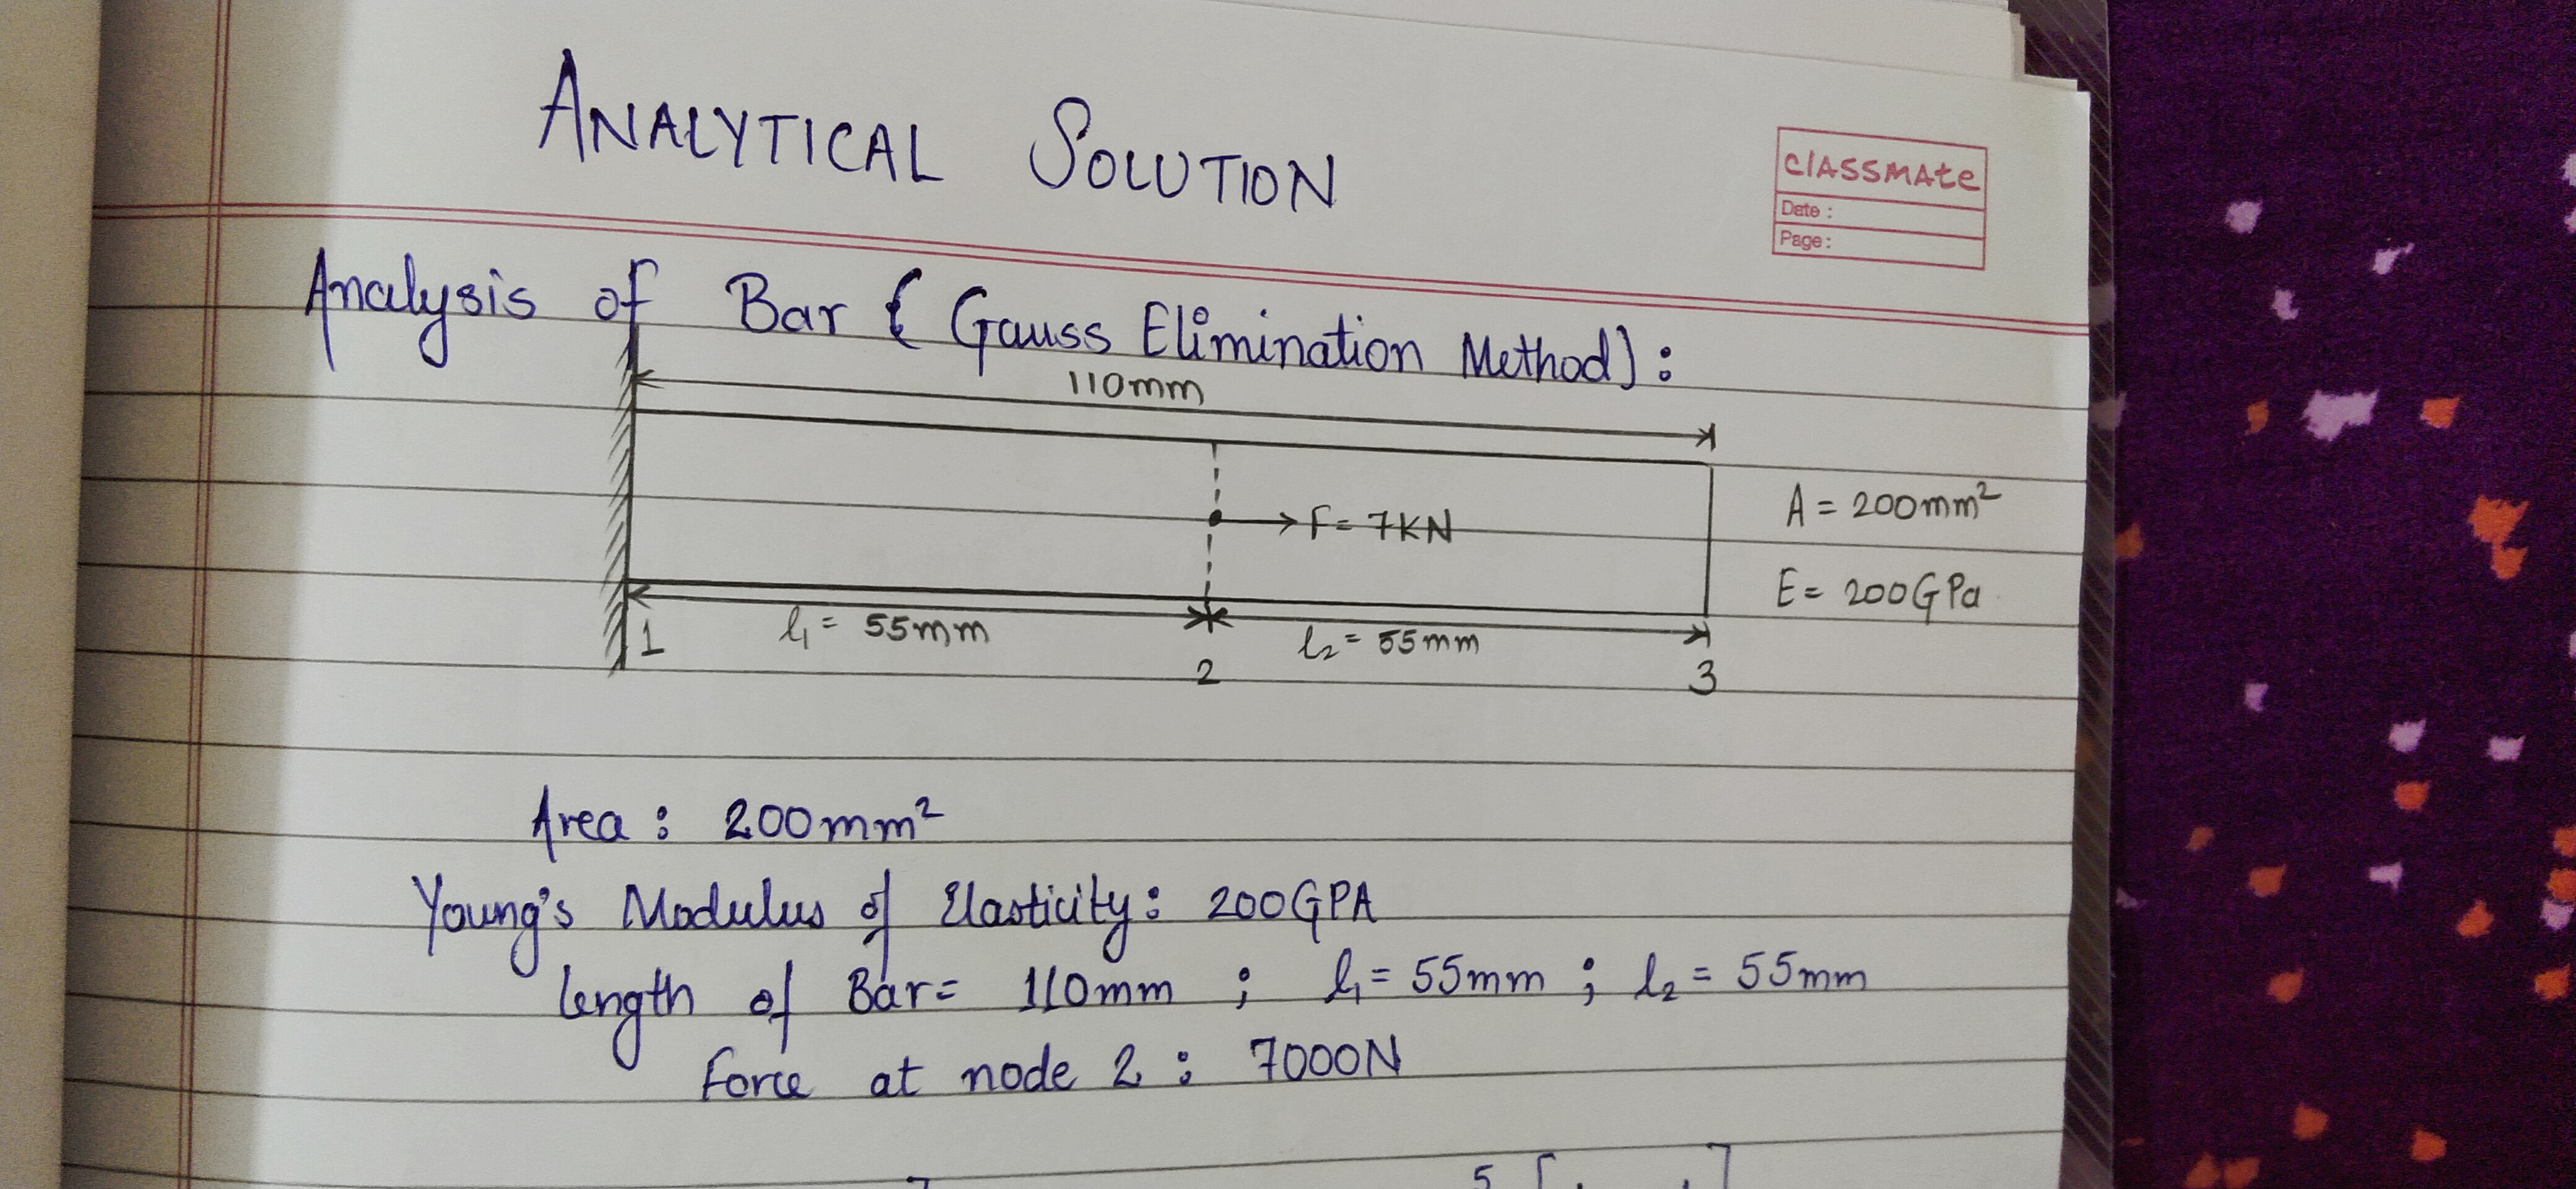 ANALYTICAL SOLUTION
classmate
Date :
Page :
Analysis of Bar { Gauss Elimination Method) :
110mm
F= 7KN
A = 200mm²
E= 200GPa
1
l₁ = 55mm
2
l₂= 55mm
3
Area : 200mm²
Young's Modulus of Elasticity : 200GPA
length of Bar= 110mm ; l₁= 55mm ; l₂ = 55mm
Force at node 2 : 7000N
5